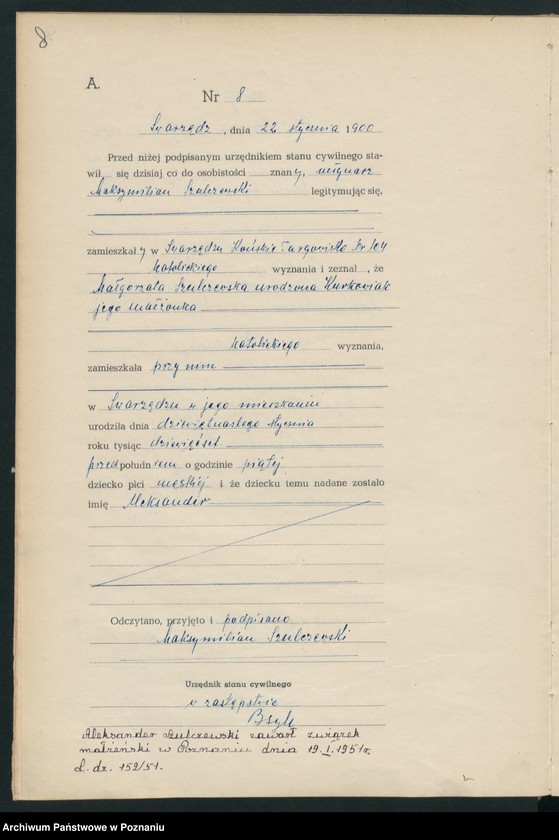 8
A.
Nr 8
Swarzędz, dnia 22 stycznia 1900
Przed niżej podpisanym urzędnikiem stanu cywilnego sta-
wił się dzisiaj co do osobistości znany,
Maksymilian Szulczewski legitymując się,
zamieszkały w Swarzędzu Końskie Targowisko Nr 104
katolickiego wyznania i zeznał, że
Małgorzata Szulczewska urodzona Kurkowiak
jego małżonka
katolickiego wyznania,
zamieszkała przy nim
w Swarzędzu w jego mieszkaniu
urodziła dnia dziewiętnastego stycznia
roku tysiąc dziewięćset
przedpołudniem o godzinie piątej
dziecko płci męskiej i że dziecku temu nadane zostało
imię Aleksander
Odczytano, przyjęto i podpisano
Maksymilian Szulczewski
Urzędnik stanu cywilnego
w zastępstwie
Aleksander Szulczewski zawarł związek
małżeński w Poznaniu dnia 19.I.1951r.
L. dz. 152/51.
Archiwum Państwowe w Poznaniu